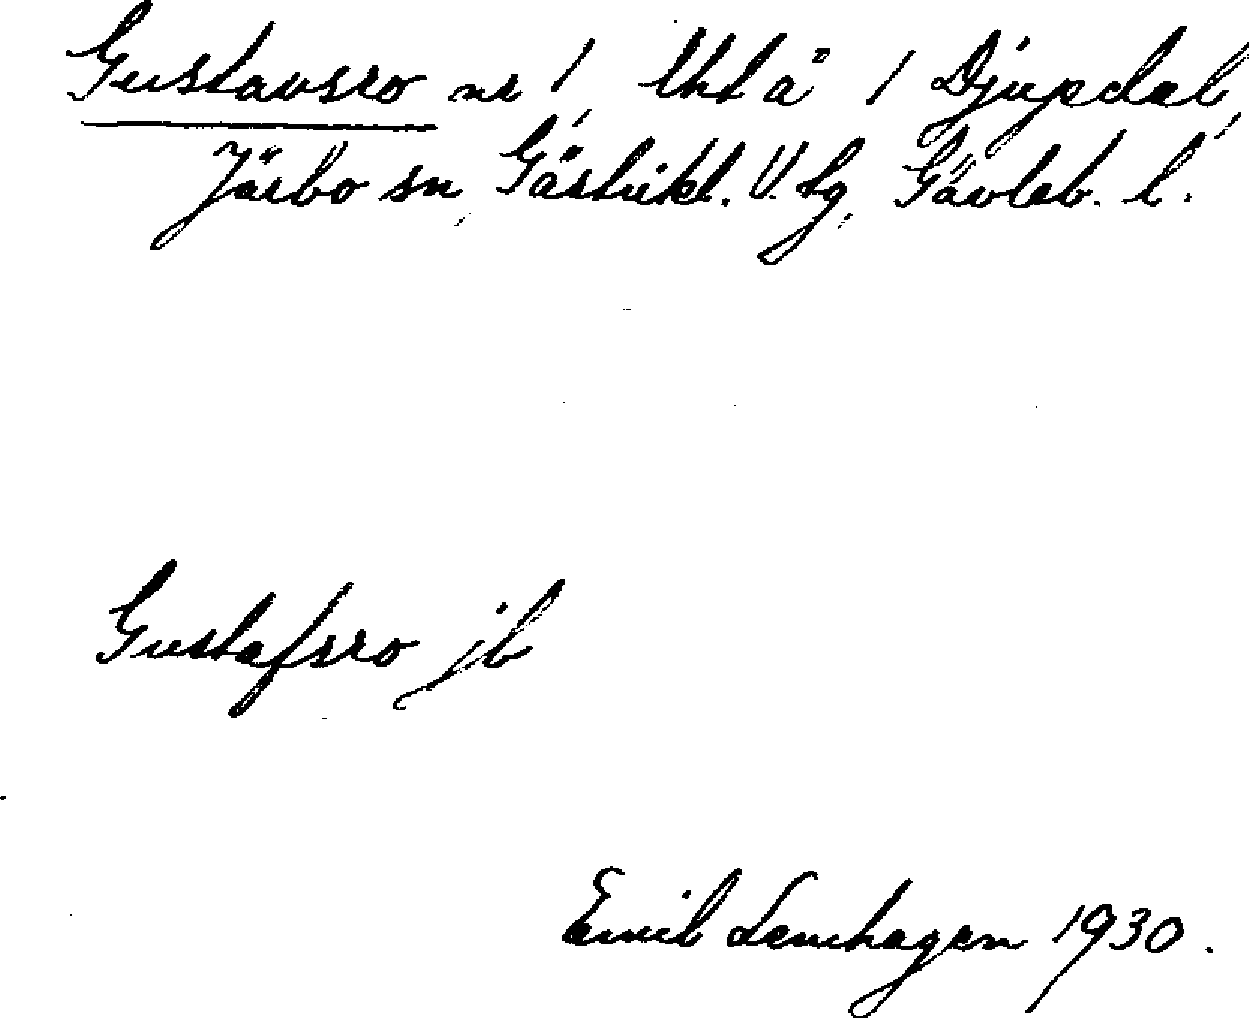 Gustavsro nr 1, lht å 1 Djupdal,
Järbo sn, Gästrikl. V. tg, Gävleb. l.
Gustafsro jb
Emil Lenhagen 1930.